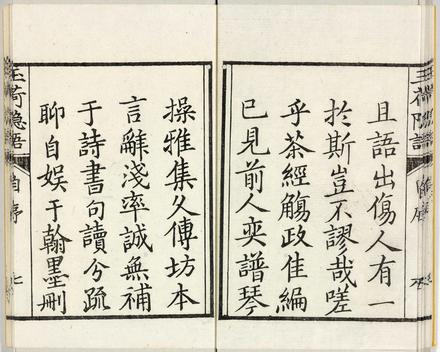 且語出傷人有一
於斯豈不謬哉嗟
乎茶經觴政佳編
已見前人奕譜琴
操雅集久傳坊本
言辭淺率誠無補
于詩書句讀分疏
聊自娱于翰墨刪
玉荷隱語
自序
七